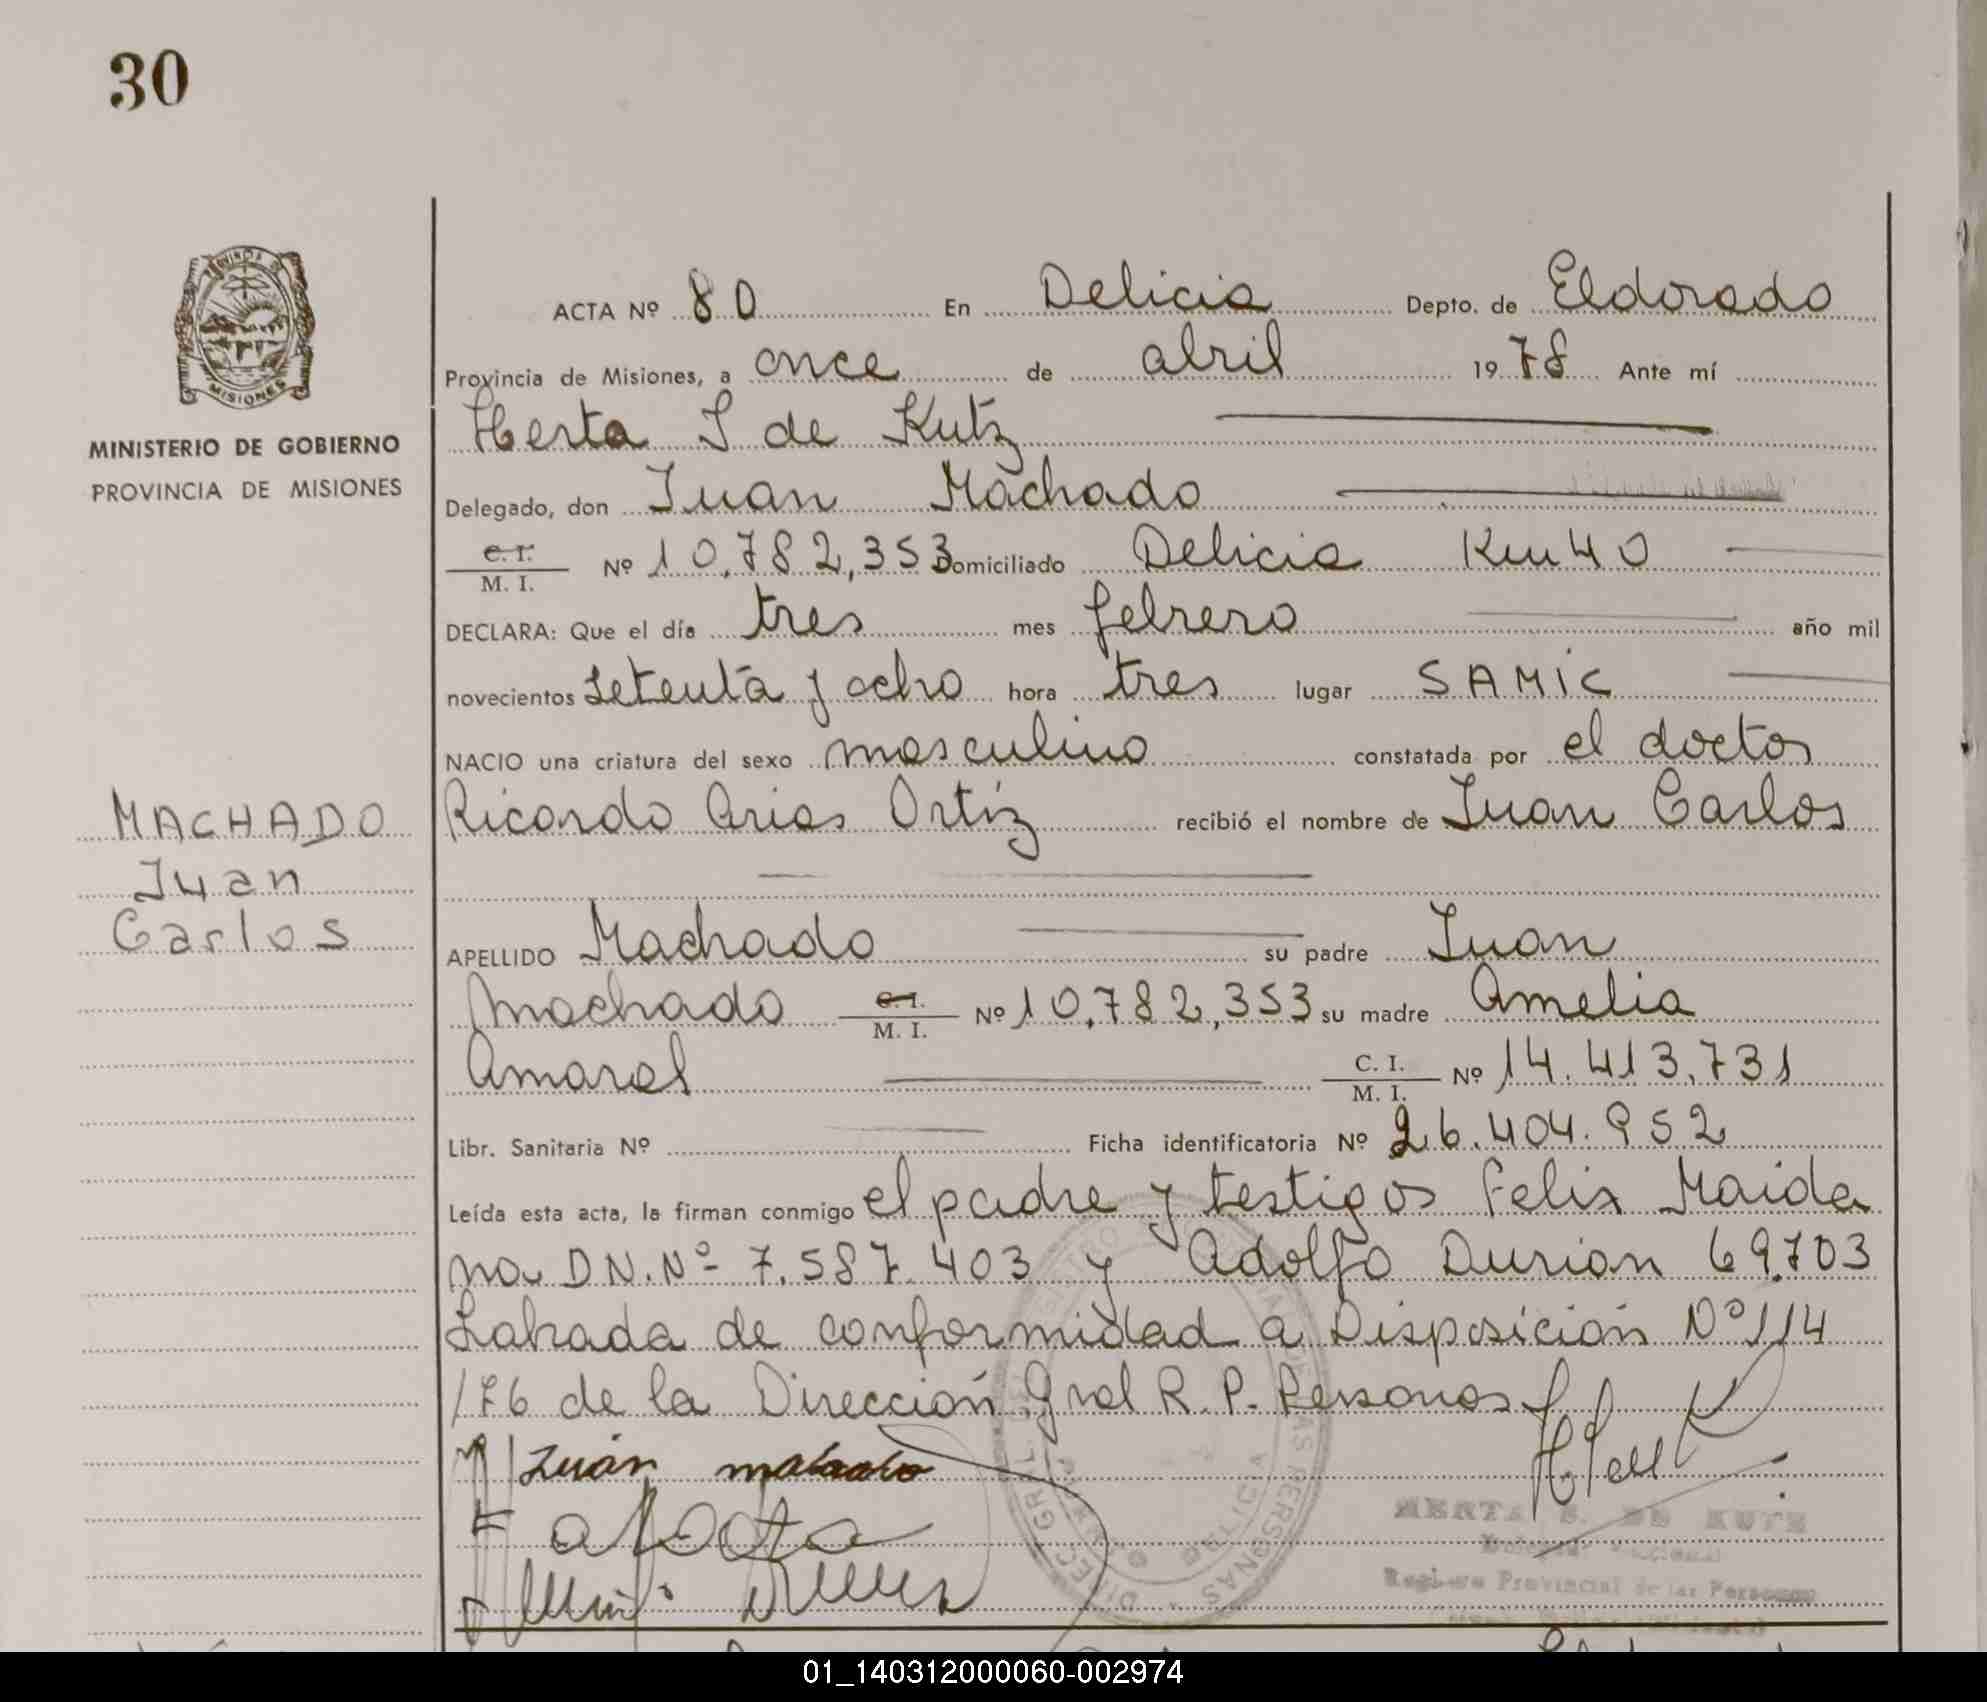 30
PROVINCIA DE
MISIONES
MINISTERIO DE GOBIERNO
PROVINCIA DE MISIONES
MACHADO
Juan
Carlos
ACTA Nº 80 En Delicia Depto. de Eldorado
Provincia de Misiones, a once de abril 1978 Ante mí
Herta S de Kutz
Delegado, don Juan Machado
C. I. / M. I. Nº 10.782,353 Domiciliado Delicia Km 40
DECLARA: Que el día tres mes febrero año mil
novecientos setenta y ocho hora tres lugar SAMIC
NACIO una criatura del sexo masculino constatada por el doctor
Ricardo Arias Ortíz recibió el nombre de Juan Carlos
APELLIDO Machado su padre Juan
Machado C. I. / M. I. Nº 10,782,353 su madre Amelia
Amaral C. I. / M. I. Nº 14.413.731
Libr. Sanitaria Nº Ficha identificatoria Nº 26.404.952
Leída esta acta, la firman conmigo el padre y testigos Felix Maida
na DN.Nº 7.587.403 y Adolfo Durian 69.703
Labrada de conformidad a Disposición Nº 114
/76 de la Dirección Gral R. P. Personas
Juan Machado
HERTA S. DE KUTZ
Registro Provincial de las Personas
01_140312000060-002974